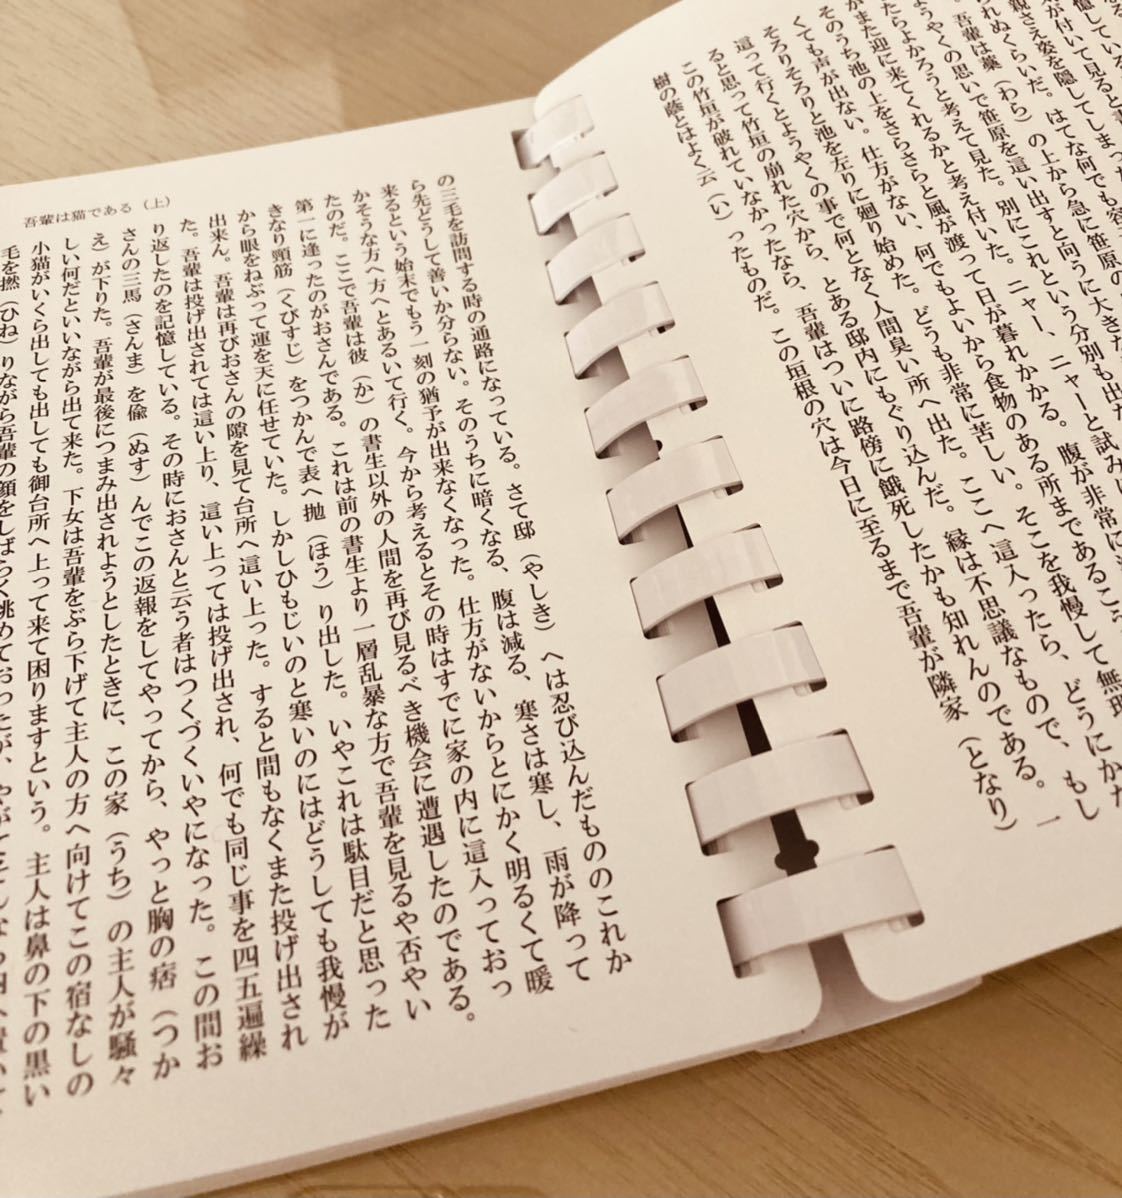 憶している
が付いて見ると書
親さえ姿を隠してしまった
られぬくらいだ。はてな何でも容
吾輩は藁（わら）の上から急に笹原の
ようやくの思いで笹原を這い出すと向うに大きな
たらよかろうと考えて見た。別にこれという分別も出な
がまた迎に来てくれるかと考え付いた。ニャー、ニャーと試みに
そのうち池の上をさらさらと風が渡って日が暮れかかる。腹が非常に
くても声が出ない。仕方がない、何でもよいから食物のある所まであるこ
そろりそろりと池を左りに廻り始めた。どうも非常に苦しい。そこを我慢して無理
這って行くとようやくの事で何となく人間臭い所へ出た。ここへ這入ったら、どうにかな
ると思って竹垣の崩れた穴から、とある邸内にもぐり込んだ。縁は不思議なもので、もし
この竹垣が破れていなかったなら、吾輩はついに路傍に餓死したかも知れんのである。一
樹の蔭とはよく云（い）ったものだ。この垣根の穴は今日に至るまで吾輩が隣家（となり）
吾輩は猫である（上）
の三毛を訪問する時の通路になっている。さて邸（やしき）へは忍び込んだもののこれか
ら先どうして善いか分らない。そのうちに暗くなる、腹は減る、寒さは寒し、雨が降って
来るという始末でもう一刻の猶予が出来なくなった。仕方がないからとにかく明るくて暖
かそうな方へ方へとあるいて行く。今から考えるとその時はすでに家の内に這入っておっ
たのだ。ここで吾輩は彼（か）の書生以外の人間を再び見るべき機会に遭遇したのである。
第一に逢ったのがおさんである。これは前の書生より一層乱暴な方で吾輩を見るや否やい
きなり頸筋（くびすじ）をつかんで表へ抛（ほう）り出した。いやこれは駄目だと思った
から眼をねぶって運を天に任せていた。しかしひもじいのと寒いのにはどうしても我慢が
出来ん。吾輩は再びおさんの隙を見て台所へ這い上った。すると間もなくまた投げ出され
た。吾輩は投げ出されては這い上り、這い上っては投げ出され、何でも同じ事を四五遍繰
り返したのを記憶している。その時におさんと云う者はつくづくいやになった。この間お
さんの三馬（さんま）を偸（ぬす）んでこの返報をしてやってから、やっと胸の痞（つか
え）が下りた。吾輩が最後につまみ出されようとしたときに、この家（うち）の主人が騒々
しい何だといいながら出て来た。下女は吾輩をぶら下げて主人の方へ向けてこの宿なしの
小猫がいくら出しても出しても御台所へ上って来て困りますという。主人は鼻の下の黒い
毛を撚（ひね）りながら吾輩の顔をしばらく眺めておったが、やがて